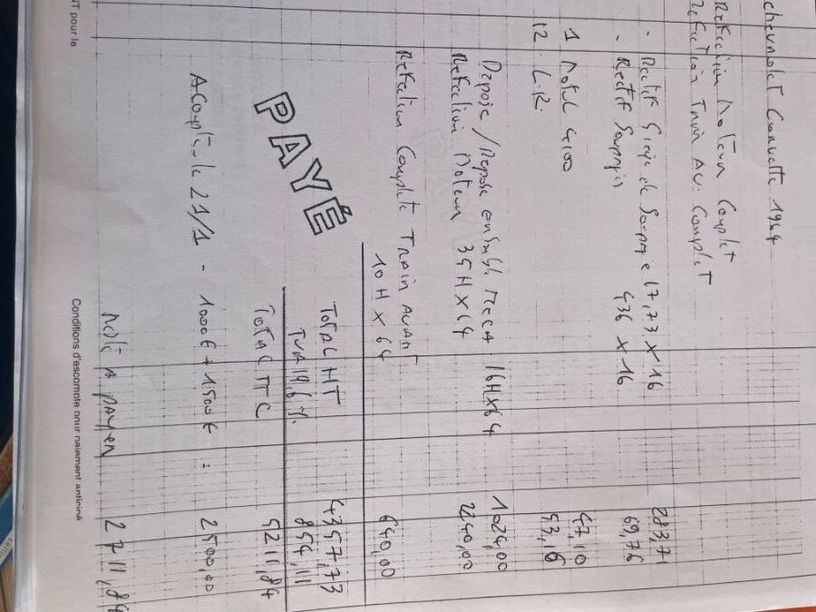 chevrolet Corvette 1964
Refection Moteur Complet
Refection Train AV. Complet
- Rectif Siege de Soupape 17,73 x 16 283,71
- Rectif Soupapes 4,36 x 16 69,76
1 Motul 4100 47,10
12 L.R. 53,16
Depose / Repose ensemble Meca 16H x 64 1024,00
Refection Moteur 35H x 64 2240,00
Refection Complete Train Avant
10 H x 64 640,00
TOTAL HT 4357,73
TVA 19,6 %. 854,11
TOTAL TTC 5211,84
PAYÉ
Acompte le 21/1 - 1000€ + 1500€ = 2500,00
Reste A payer 2711,84
NT pour le
Conditions d'escompte pour paiement anticipé